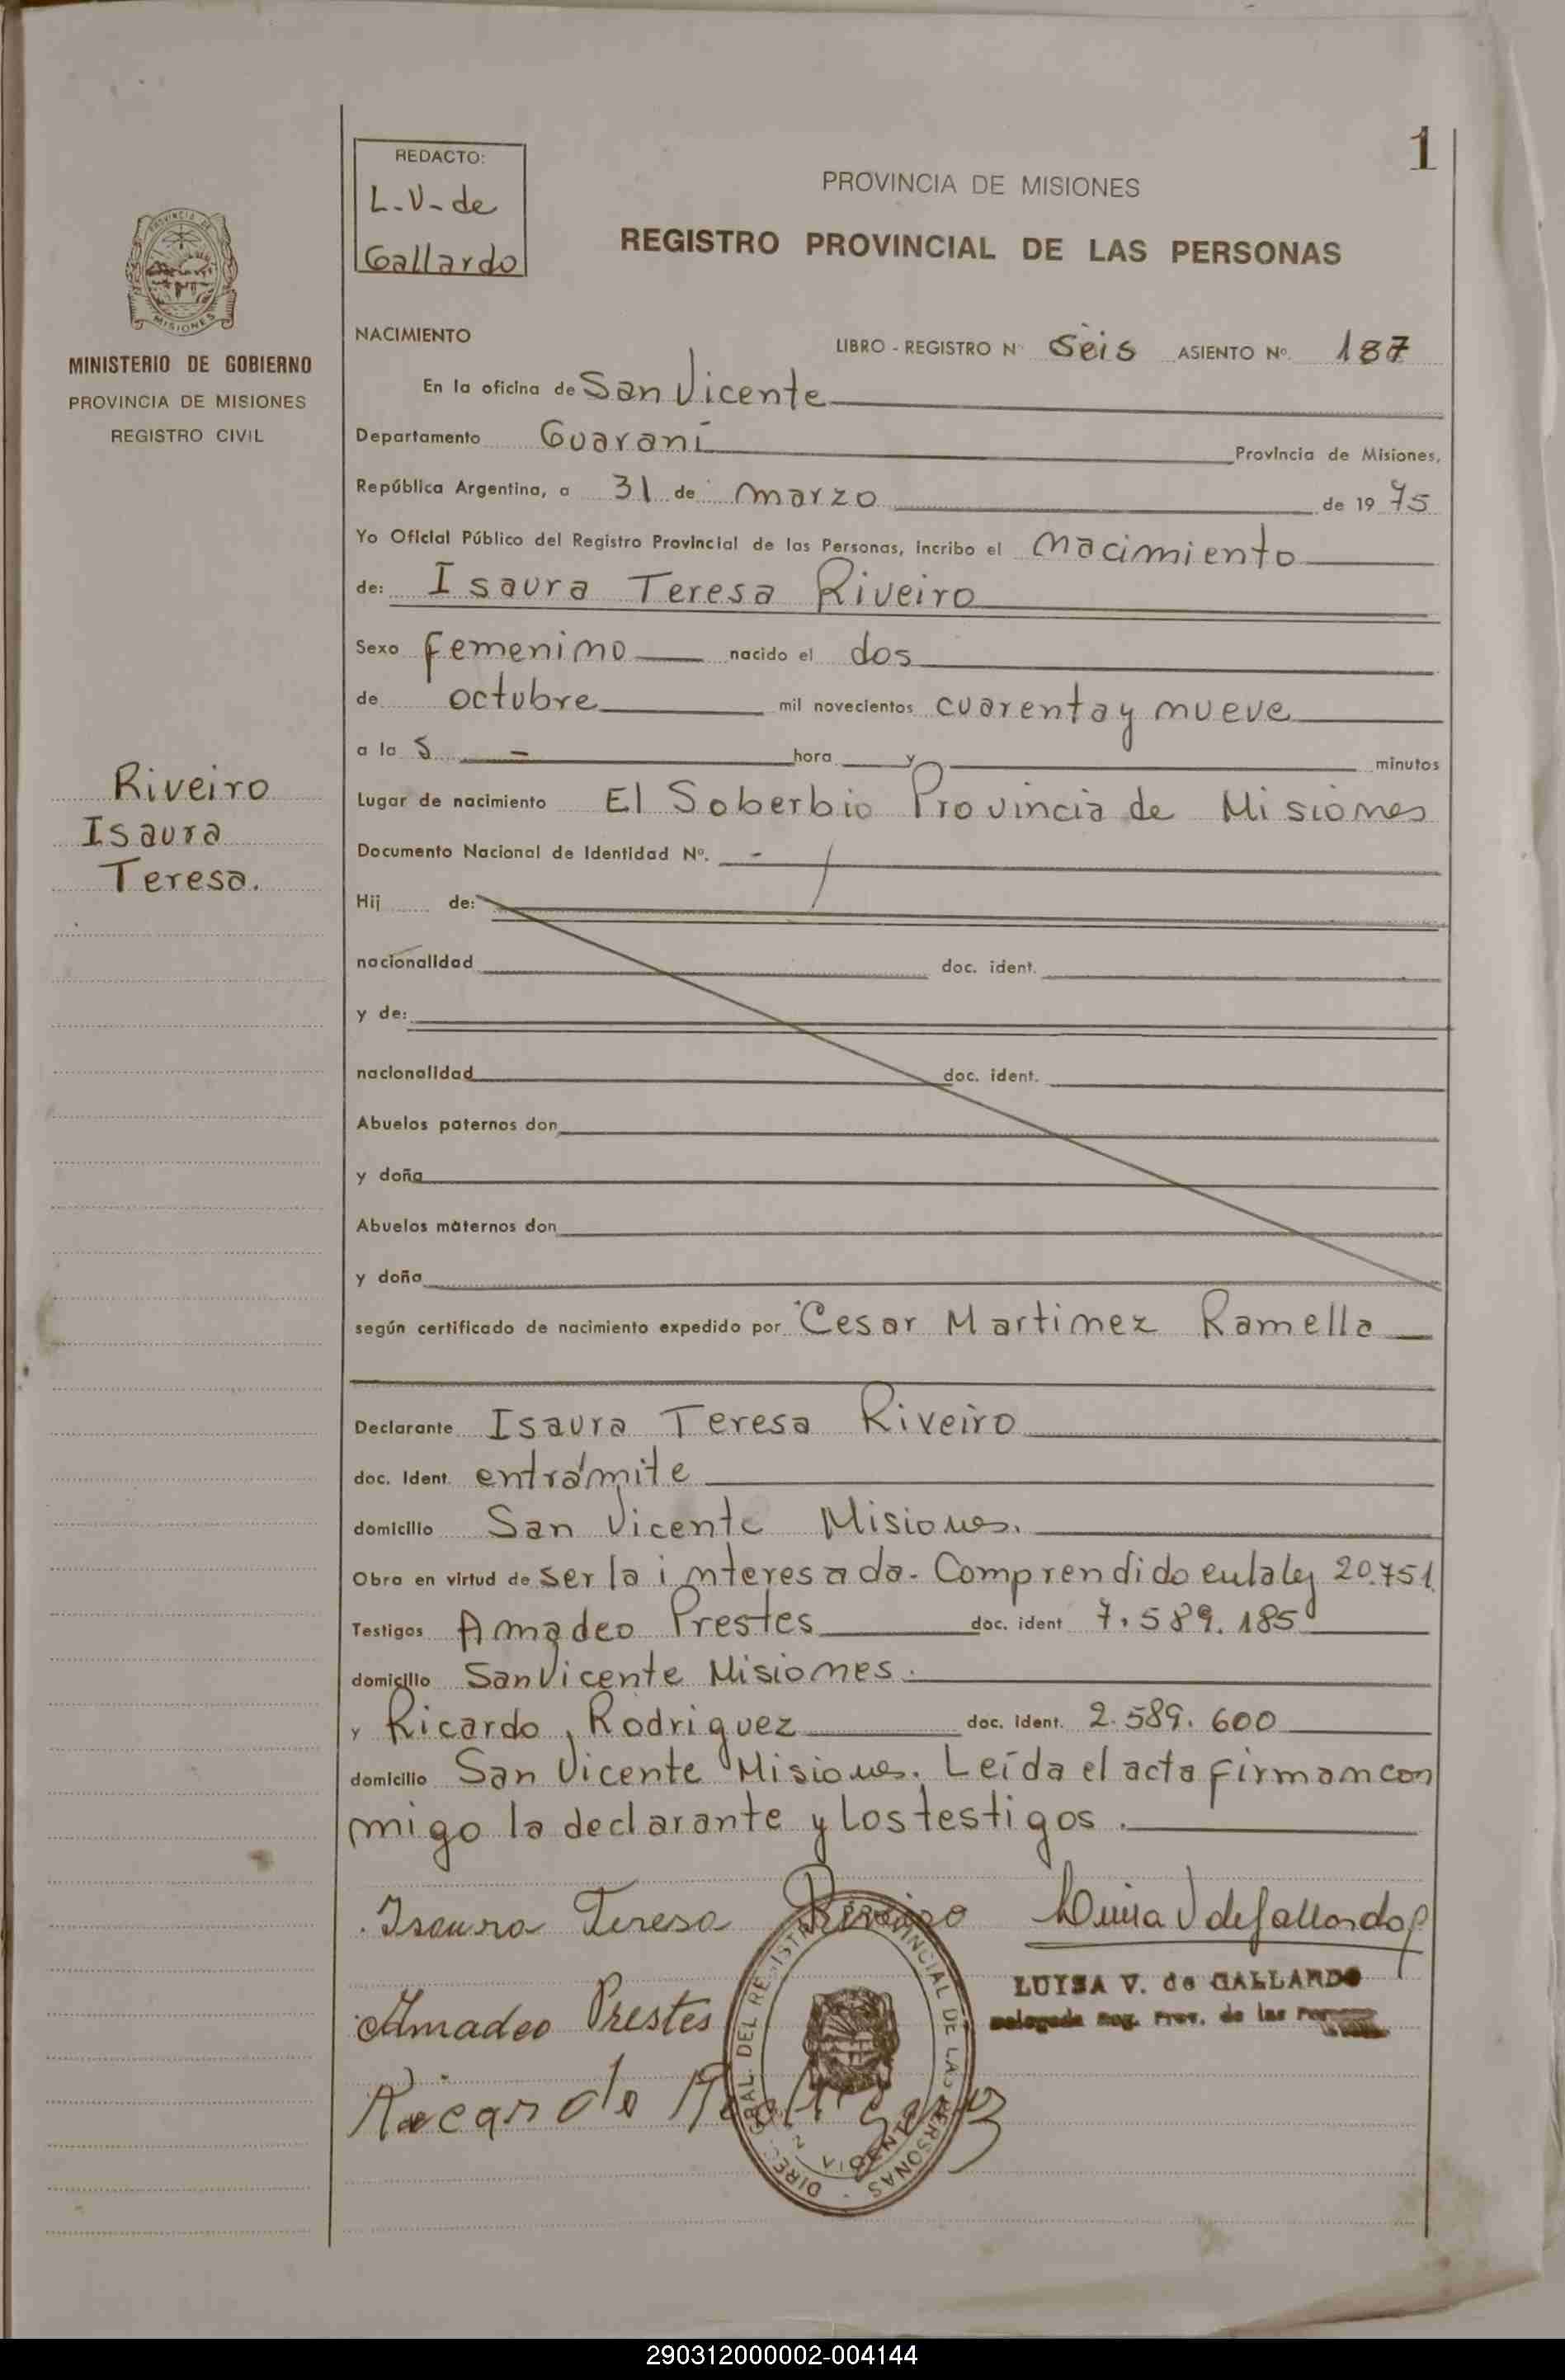 1
REDACTO:
L.V. de
Gallardo
PROVINCIA DE MISIONES
REGISTRO PROVINCIAL DE LAS PERSONAS
PROVINCIA DE
MISIONES
MINISTERIO DE GOBIERNO
PROVINCIA DE MISIONES
REGISTRO CIVIL
Riveiro
Isaura
Teresa.
NACIMIENTO
LIBRO - REGISTRO Nº Seis ASIENTO Nº. 187
En la oficina de San Vicente
Departamento Guaraní Provincia de Misiones,
República Argentina, a 31 de marzo de 19 75
Yo Oficial Público del Registro Provincial de las Personas, incribo el nacimiento
de: Isaura Teresa Riveiro
Sexo femenino nacido el dos
de octubre mil novecientos cuarenta y nueve
a la s - hora y minutos
Lugar de nacimiento El Soberbio Provincia de Misiones
Documento Nacional de Identidad Nº. -
Hij de:
nacionalidad doc. ident.
y de:
nacionalidad doc. ident.
Abuelos paternos don
y doña
Abuelos maternos don
y doña
según certificado de nacimiento expedido por Cesar Martinez Ramella
Declarante Isaura Teresa Riveiro
doc. Ident. entrámite
domicilio San Vicente Misiones.
Obra en virtud de ser la interesada. Comprendido en la ley 20.751
Testigos Amadeo Prestes doc. ident 7.589.185
domicilio San Vicente Misiones.
y Ricardo Rodriguez doc. ident. 2.589.600
domicilio San Vicente Misiones. Leída el acta firman con
migo la declarante y los testigos.
Isaura Teresa Riveiro Luisa V de Gallardo
LUISA V. de GALLARDO
Delegada Reg. Prov. de las Personas
Amadeo Prestes
Ricardo Rodriguez
DIREC. GRAL. DEL REGISTRO PROVINCIAL DE LAS PERSONAS
290312000002-004144